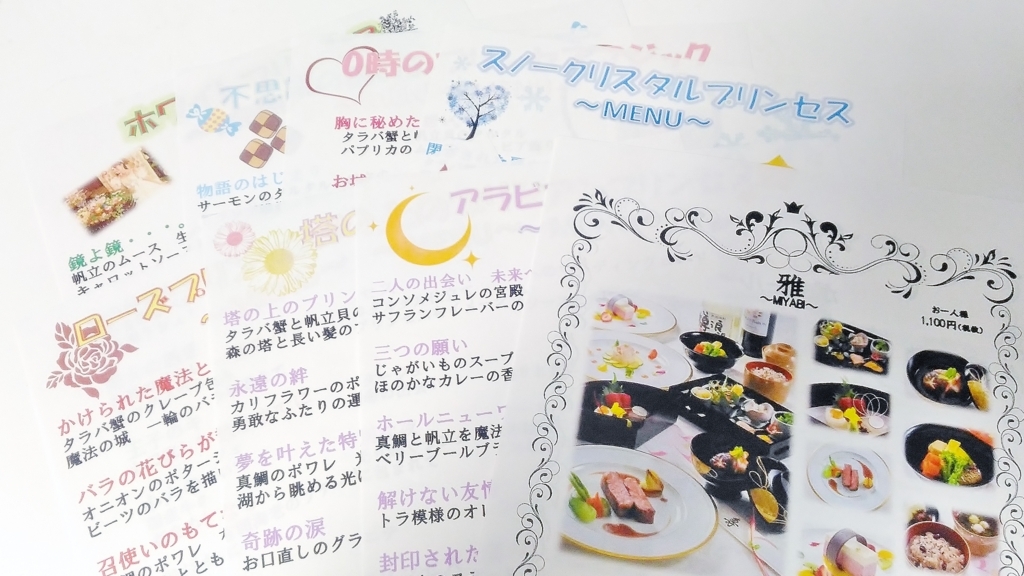 スノークリスタルプリンセス
～MENU～
0時の
胸に秘めた
タラバ蟹と
パプリカの
不思
物語のはじ
サーモンの
ホワ
鏡よ鏡・・・。
帆立のムース 生
キャロットソー
ローズプ
かけられた魔法と
タラバ蟹のクレープ包
魔法の城 一輪のバラ
バラの花びらが
オニオンのポタージ
ビーツのバラを描
召使いのもて
のポワレ
塔の
塔の上のプリン
タラバ蟹と帆立貝の
森の塔と長い髪の
永遠の絆
カリフラワーのポ
勇敢なふたりの運
夢を叶えた特
真鯛のポワレ
湖から眺める光
奇跡の涙
お口直しのグラ
アラビ
二人の出会い 未来へ
コンソメジュレの宮殿
サフランフレーバーの
三つの願い
じゃがいものスープ
ほのかなカレーの香
ホールニューワ
真鯛と帆立を魔法
ベリーブールブ
解けない友情
トラ模様のオー
封印された
雅
～MIYABI～
お一人様
1,100円(税抜)